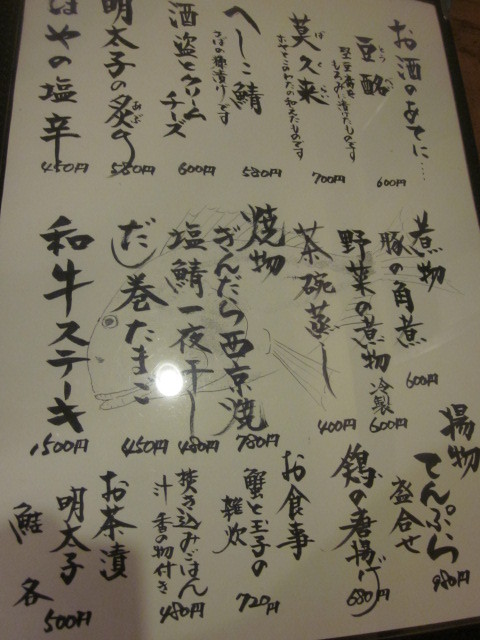 お酒のあてに…
豆酩
とう
堅豆腐を
もろみに漬けたものです
600円
莫久来
ばくらい
ほやとこのわたの和えたものです
700円
へしこ鯖
さばの糠漬けです
580円
酒盗とクリーム
チーズ
600円
明太子の炙り
あぶ
580円
ほやの塩辛
450円
煮物
豚の角煮
600円
野菜の煮物 冷製
600円
茶碗蒸し
400円
焼物
ぎんだら西京焼
780円
塩鯖一夜干し
480円
だし巻たまご
450円
和牛ステーキ
1,500円
揚物
てんぷら
盛合せ
980円
鶏の唐揚げ
680円
お食事
蟹と玉子の
雑炊
720円
炊き込みごはん
汁 香の物付き
480円
お茶漬
明太子
鮭 各
500円